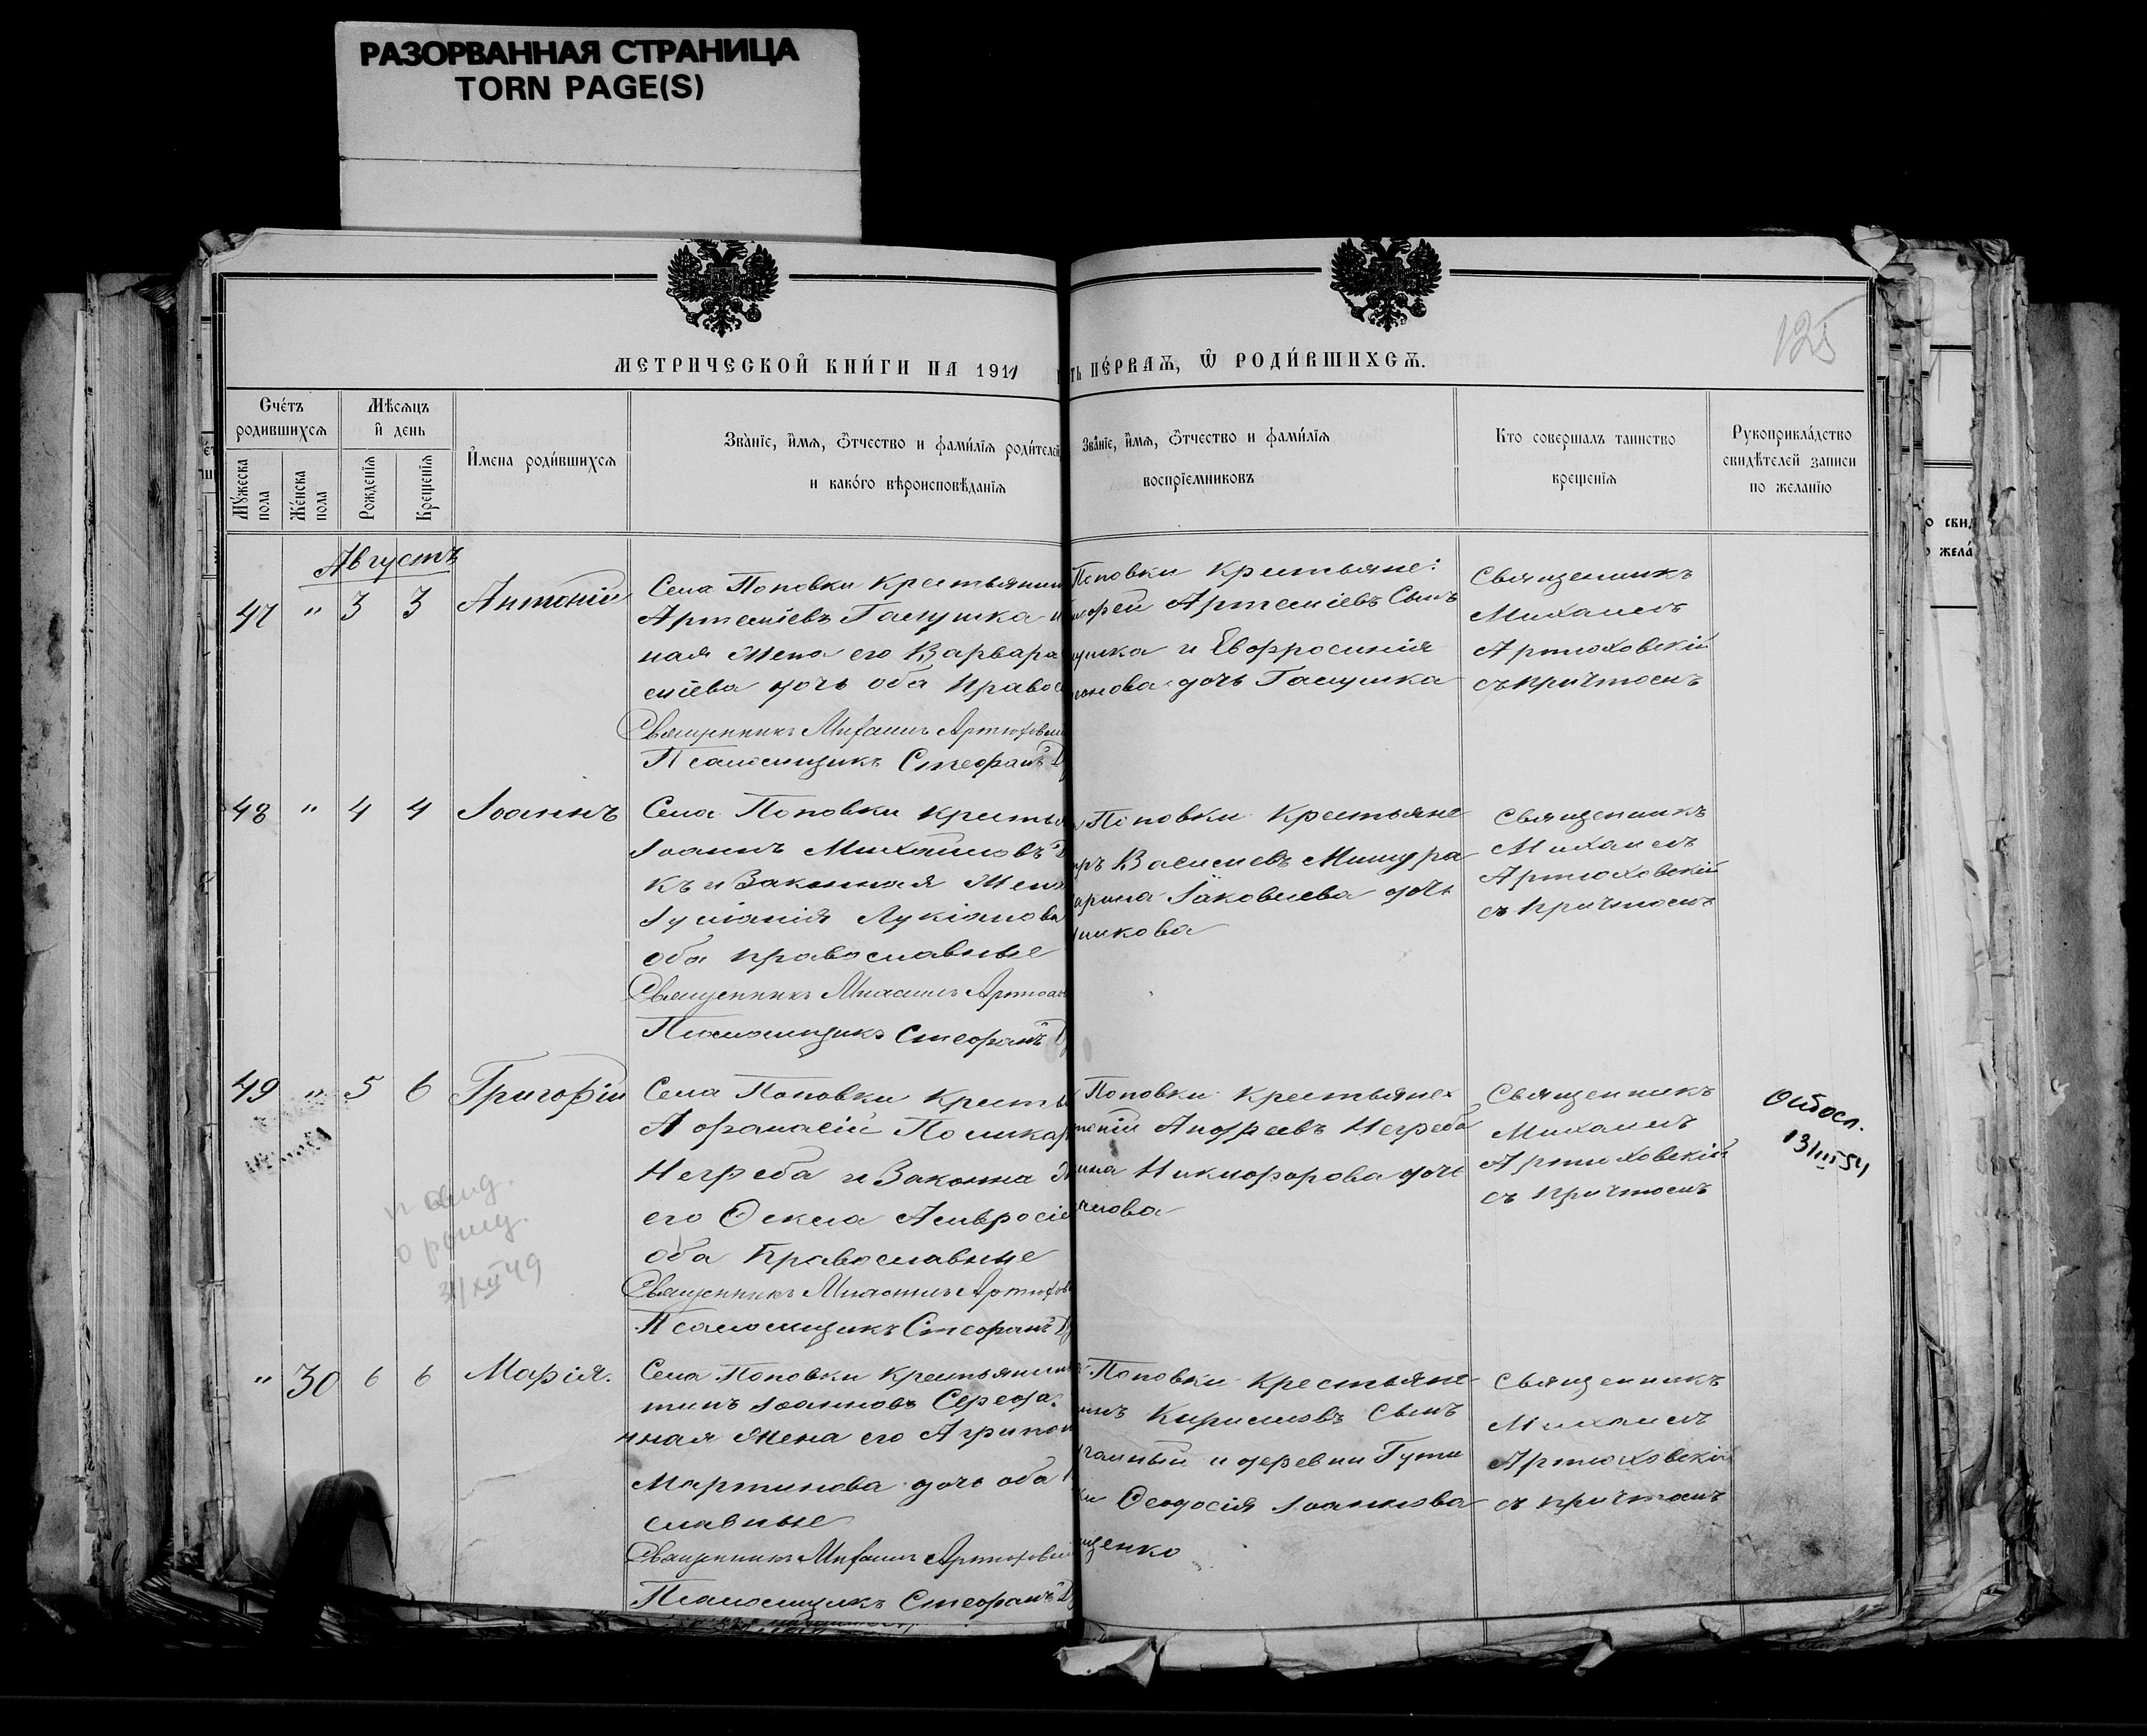 РАЗОРВАННАЯ СТРАНИЦА
TORN PAGE(S)
МЕТРИЧЕСКОЙ КНИ́ГИ НА 1911
ть ПЕ́РВАѦ, Ѿ РОДИ́ВШИХСѦ.
125
Сче́тъ родившихсѧ
Мѣсѧцъ и҆ день
И҆мена роди́вшихсѧ
Зва́нїе, и҆́мѧ, ѻ҆́тчество и фами́лїѧ роди́телей
и како́го вѣроисповѣ́данїѧ
Зва́нїе, и҆́мѧ, ѻ҆́тчество и фами́лїѧ
воспрїе́мниковъ
Кто совершалъ таинство
крещенїѧ
Рукоприкла́дство
свидѣ́телей записи
по желанїю
Мꙋ́жеска пола
Же́нска пола
Рожденїѧ
Крещенїѧ
Августъ
47 " 3 3 Антоній
Села Поповки Крестьянин
Артеміевъ Галушка и
ная жена его Варвара
сіева дочь оба право
Священникъ Михаилъ Артюховскі
Псаломщикъ Стефанъ
Поповки Крестьяне:
офей Артеміевъ Сынъ
ушка и Евфросинія
онова дочь Галушка
Священникъ
Михаилъ
Артюховскій
съ причтомъ
48 " 4 4 Іоаннъ
Села Поповки Крестья
Іоаннъ Михайловъ
къ и Законная Жена
Іуліанія Лукіанова
оба православные
Священникъ Михаилъ Артюхов
Псаломщикъ Стефанъ
Поповки Крестьяне
ръ Василіевъ Мишура
арина Іаковлева дочь
никова
Священникъ
Михаилъ
Артюховскій
съ причтомъ
49 " 5 6 Григорій
Села Поповки Кресть
Афанасій Поликар
Негреба и Законна
его Ѳекла Амвросіе
оба Православные
Священникъ Михаилъ Артюхов
Псаломщикъ Стефанъ
Поповки Крестьяне
оній Андреевъ Негреба
ина Никифорова дочь
Священникъ
Михаилъ
Артюховскій
съ причтомъ
31/XII 49
" 30 6 6 Марія.
Села Поповки Крестьянин
тинъ Іоанновъ
нная жена его Агрипп
Мартинова дочь оба
славные
Священникъ Михаилъ Артюховскі
Псаломщикъ Стефанъ
Поповки Крестьяне
Кириловъ Сынъ
и деревни Гути
Ѳеодосія Іоаннова
щенко
Священникъ
Михаилъ
Артюховскій
съ причтомъ